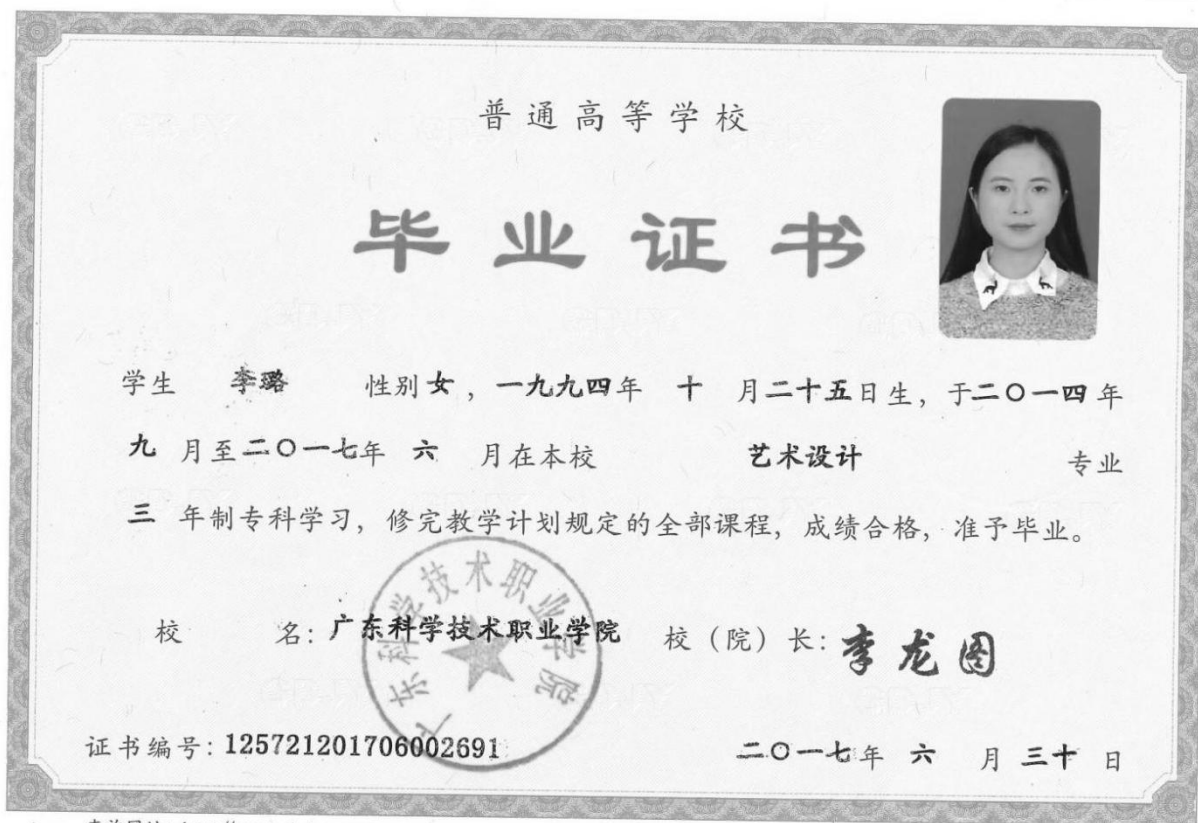 普通高等学校
毕业证书
学生 李璐 性别女，一九九四年 十 月二十五日生，于二〇一四年
九 月至二〇一七年 六 月在本校 艺术设计 专业
三 年制专科学习，修完教学计划规定的全部课程，成绩合格，准予毕业。
广东科学技术职业学院
校 名：广东科学技术职业学院 校（院）长：李龙图
证书编号：125721201706002691 二〇一七年 六 月 三十 日